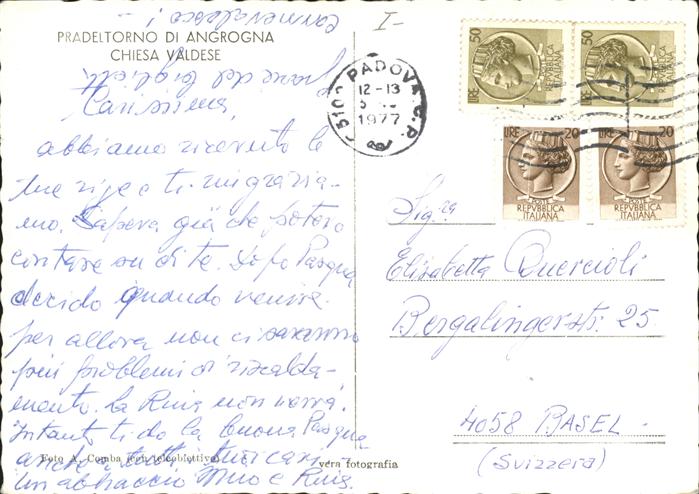 PRADELTORNO DI ANGROGNA
CHIESA VALDESE
Carissima,
abbiamo ricevuto le
tue righe e ti ringrazia-
mo. Sapeva già che potevo
contare su di te. Dopo Pasqua
decido quando venire
per allora non ci saranno
più problemi di riscalda-
mento. La
non verrà.
Intanto ti do la buona Pasqua
anche a tutti i tuoi cari
un abbraccio
e
Foto A. Comba (con teleobiettivo)
vera fotografia
I-
PADOVA C.P.
12-13
1977
LIRE 50
POSTE
REPVBBLICA
ITALIANA
LIRE 50
POSTE
REPVBBLICA
ITALIANA
LIRE 20
POSTE
REPVBBLICA
ITALIANA
LIRE 20
POSTE
REPVBBLICA
ITALIANA
Sig.ra
Elisabetta Quercioli
Bergalingerstr. 25
4058 BASEL
(Svizzera)